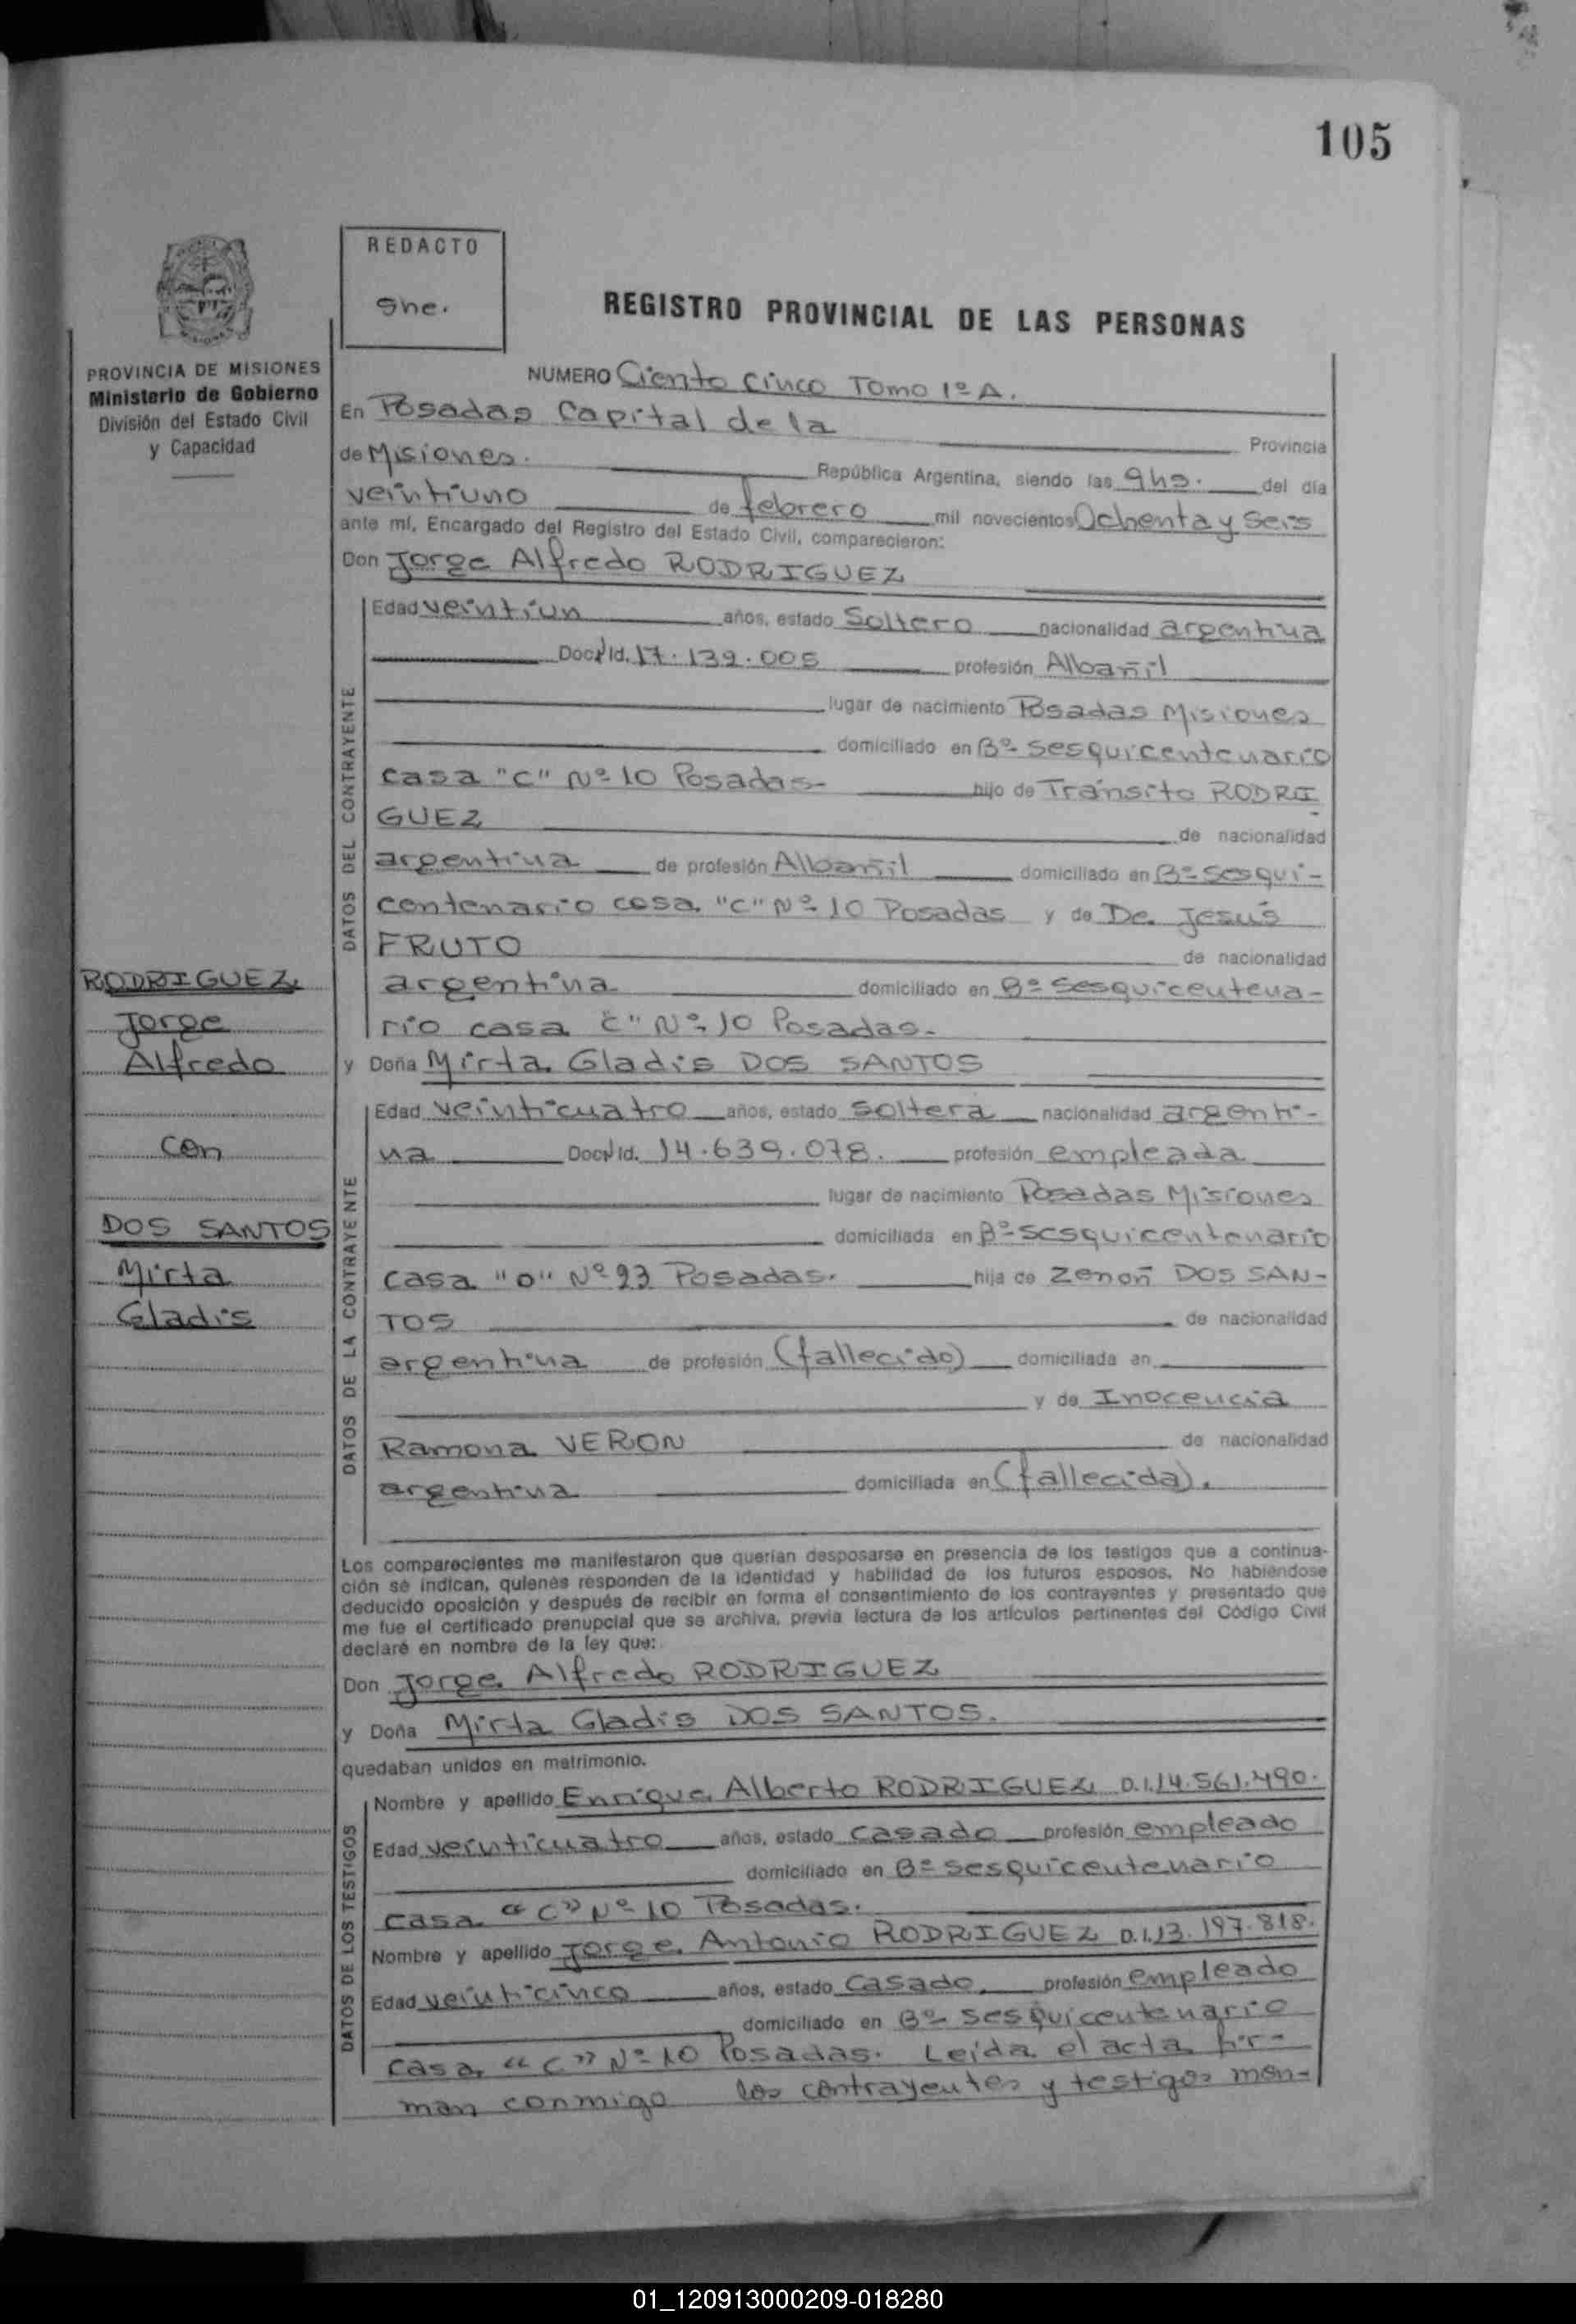 105
REDACTO
She.
REGISTRO PROVINCIAL DE LAS PERSONAS
PROVINCIA DE MISIONES
Ministerio de Gobierno
División del Estado Civil
y Capacidad
NUMERO Ciento cinco Tomo 1º A.
En Posadas Capital de la Provincia
de Misiones. República Argentina, siendo las 9hs. del día
veintiuno de febrero mil novecientos Ochenta y Seis
ante mí, Encargado del Registro del Estado Civil, comparecieron:
Don Jorge Alfredo RODRIGUEZ
DATOS DEL CONTRAYENTE
Edad veintiun años, estado Soltero nacionalidad argentina
Doc. Id. 17.139.005 profesión Albañil
lugar de nacimiento Posadas Misiones
domiciliado en Bº Sesquicentenario
casa "C" Nº 10 Posadas- hijo de Tránsito RODRI
GUEZ de nacionalidad
argentina de profesión Albañil domiciliado en Bº Sesqui-
centenario casa "C" Nº 10 Posadas y de De Jesús
FRUTO de nacionalidad
argentina domiciliado en Bº Sesquicentena-
rio casa C" Nº 10 Posadas.
y Doña Mirta Gladis DOS SANTOS
DATOS DE LA CONTRAYENTE
Edad veinticuatro años, estado Soltera nacionalidad argenti-
na Doc. Id. 14.639.078. profesión empleada
lugar de nacimiento Posadas Misiones
domiciliada en Bº Sesquicentenario
casa "O" Nº 23 Posadas. hija de Zenón DOS SAN-
TOS de nacionalidad
argentina de profesión (fallecido) domiciliada en
y de Inocencia
Ramona VERON de nacionalidad
argentina domiciliada en (fallecida).
Los comparecientes me manifestaron que querían desposarse en presencia de los testigos que a continua-
ción se indican, quienes responden de la identidad y habilidad de los futuros esposos. No habiéndose
deducido oposición y después de recibir en forma el consentimiento de los contrayentes y presentado que
me fue el certificado prenupcial que se archiva, previa lectura de los artículos pertinentes del Código Civil
declaré en nombre de la ley que:
Don Jorge Alfredo RODRIGUEZ
y Doña Mirta Gladis DOS SANTOS.
quedaban unidos en matrimonio.
DATOS DE LOS TESTIGOS
Nombre y apellido Enrique Alberto RODRIGUEZ D.I.14.561.490.
Edad veinticuatro años, estado casado profesión empleado
domiciliado en Bº Sesquicentenario
casa "C" Nº 10 Posadas.
Nombre y apellido Jorge Antonio RODRIGUEZ D.I.13.197.818.
Edad veinticinco años, estado Casado profesión empleado
domiciliado en Bº Sesquicentenario
casa "C" Nº 10 Posadas. Leída el acta fir-
man conmigo los contrayentes y testigos men-
RODRIGUEZ
Jorge
Alfredo
con
DOS SANTOS
Mirta
Gladis
01_120913000209-018280